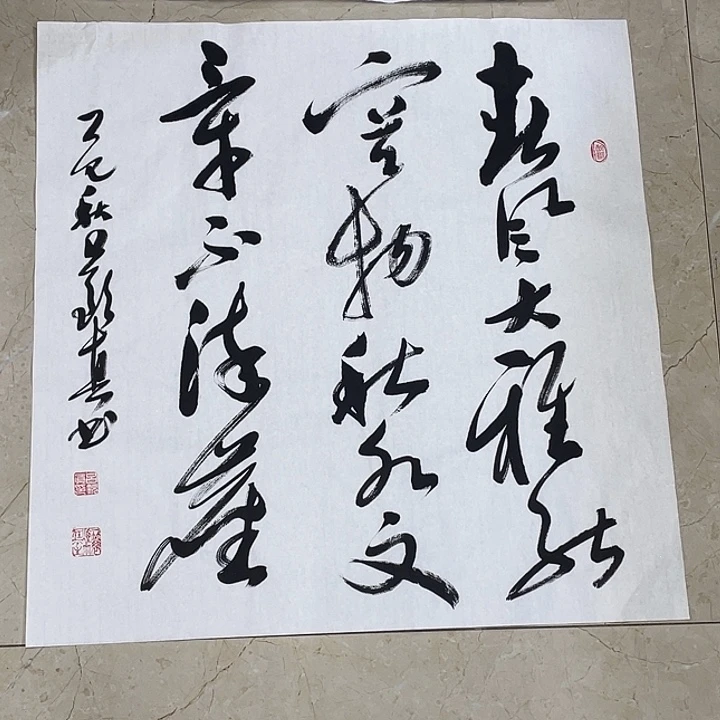 春風大雅能
容物秋水文
章不染塵
乙巳秋日真书